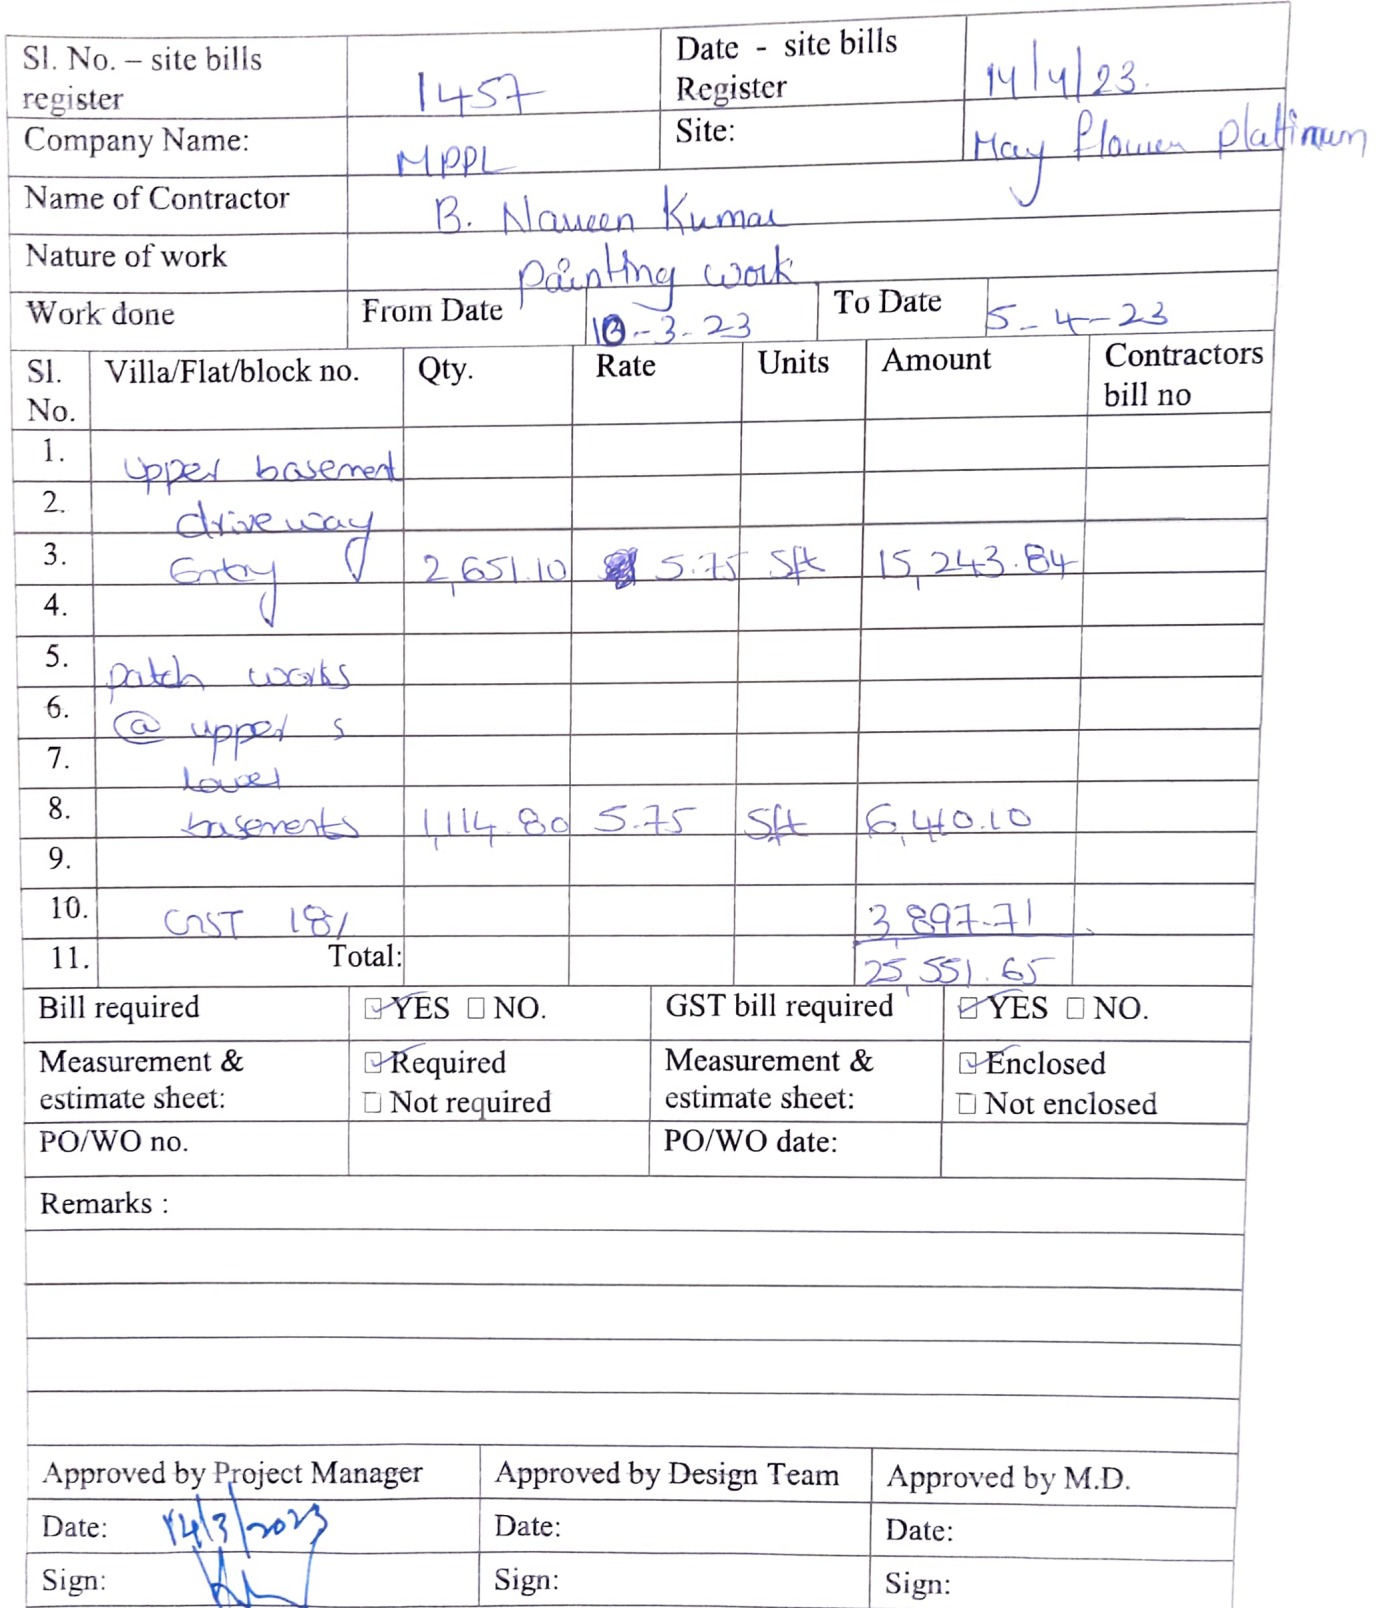 Sl. No. – site bills register 1457 Date - site bills Register 14/4/23.
Company Name: MPPL Site: May flower platinum
Name of Contractor B. Naveen Kumar
Nature of work painting work
Work done From Date 10-3-23 To Date 5-4-23
Sl. No. Villa/Flat/block no. Qty. Rate Units Amount Contractors bill no
1. upper basement
2. driveway
3. Entry 2,651.10 5.75 Sft 15,243.84
4.
5. patch works
6. @ upper s
7. lower
8. basements 1,114.80 5.75 Sft 6,410.10
9.
10. GST 18/ 3,897.71
11. Total: 25,551.65
Bill required YES NO. GST bill required YES NO.
Measurement & estimate sheet: Required Not required Measurement & estimate sheet: Enclosed Not enclosed
PO/WO no. PO/WO date:
Remarks :
Approved by Project Manager Approved by Design Team Approved by M.D.
Date: 14/3/2023 Date: Date:
Sign: Sign: Sign: